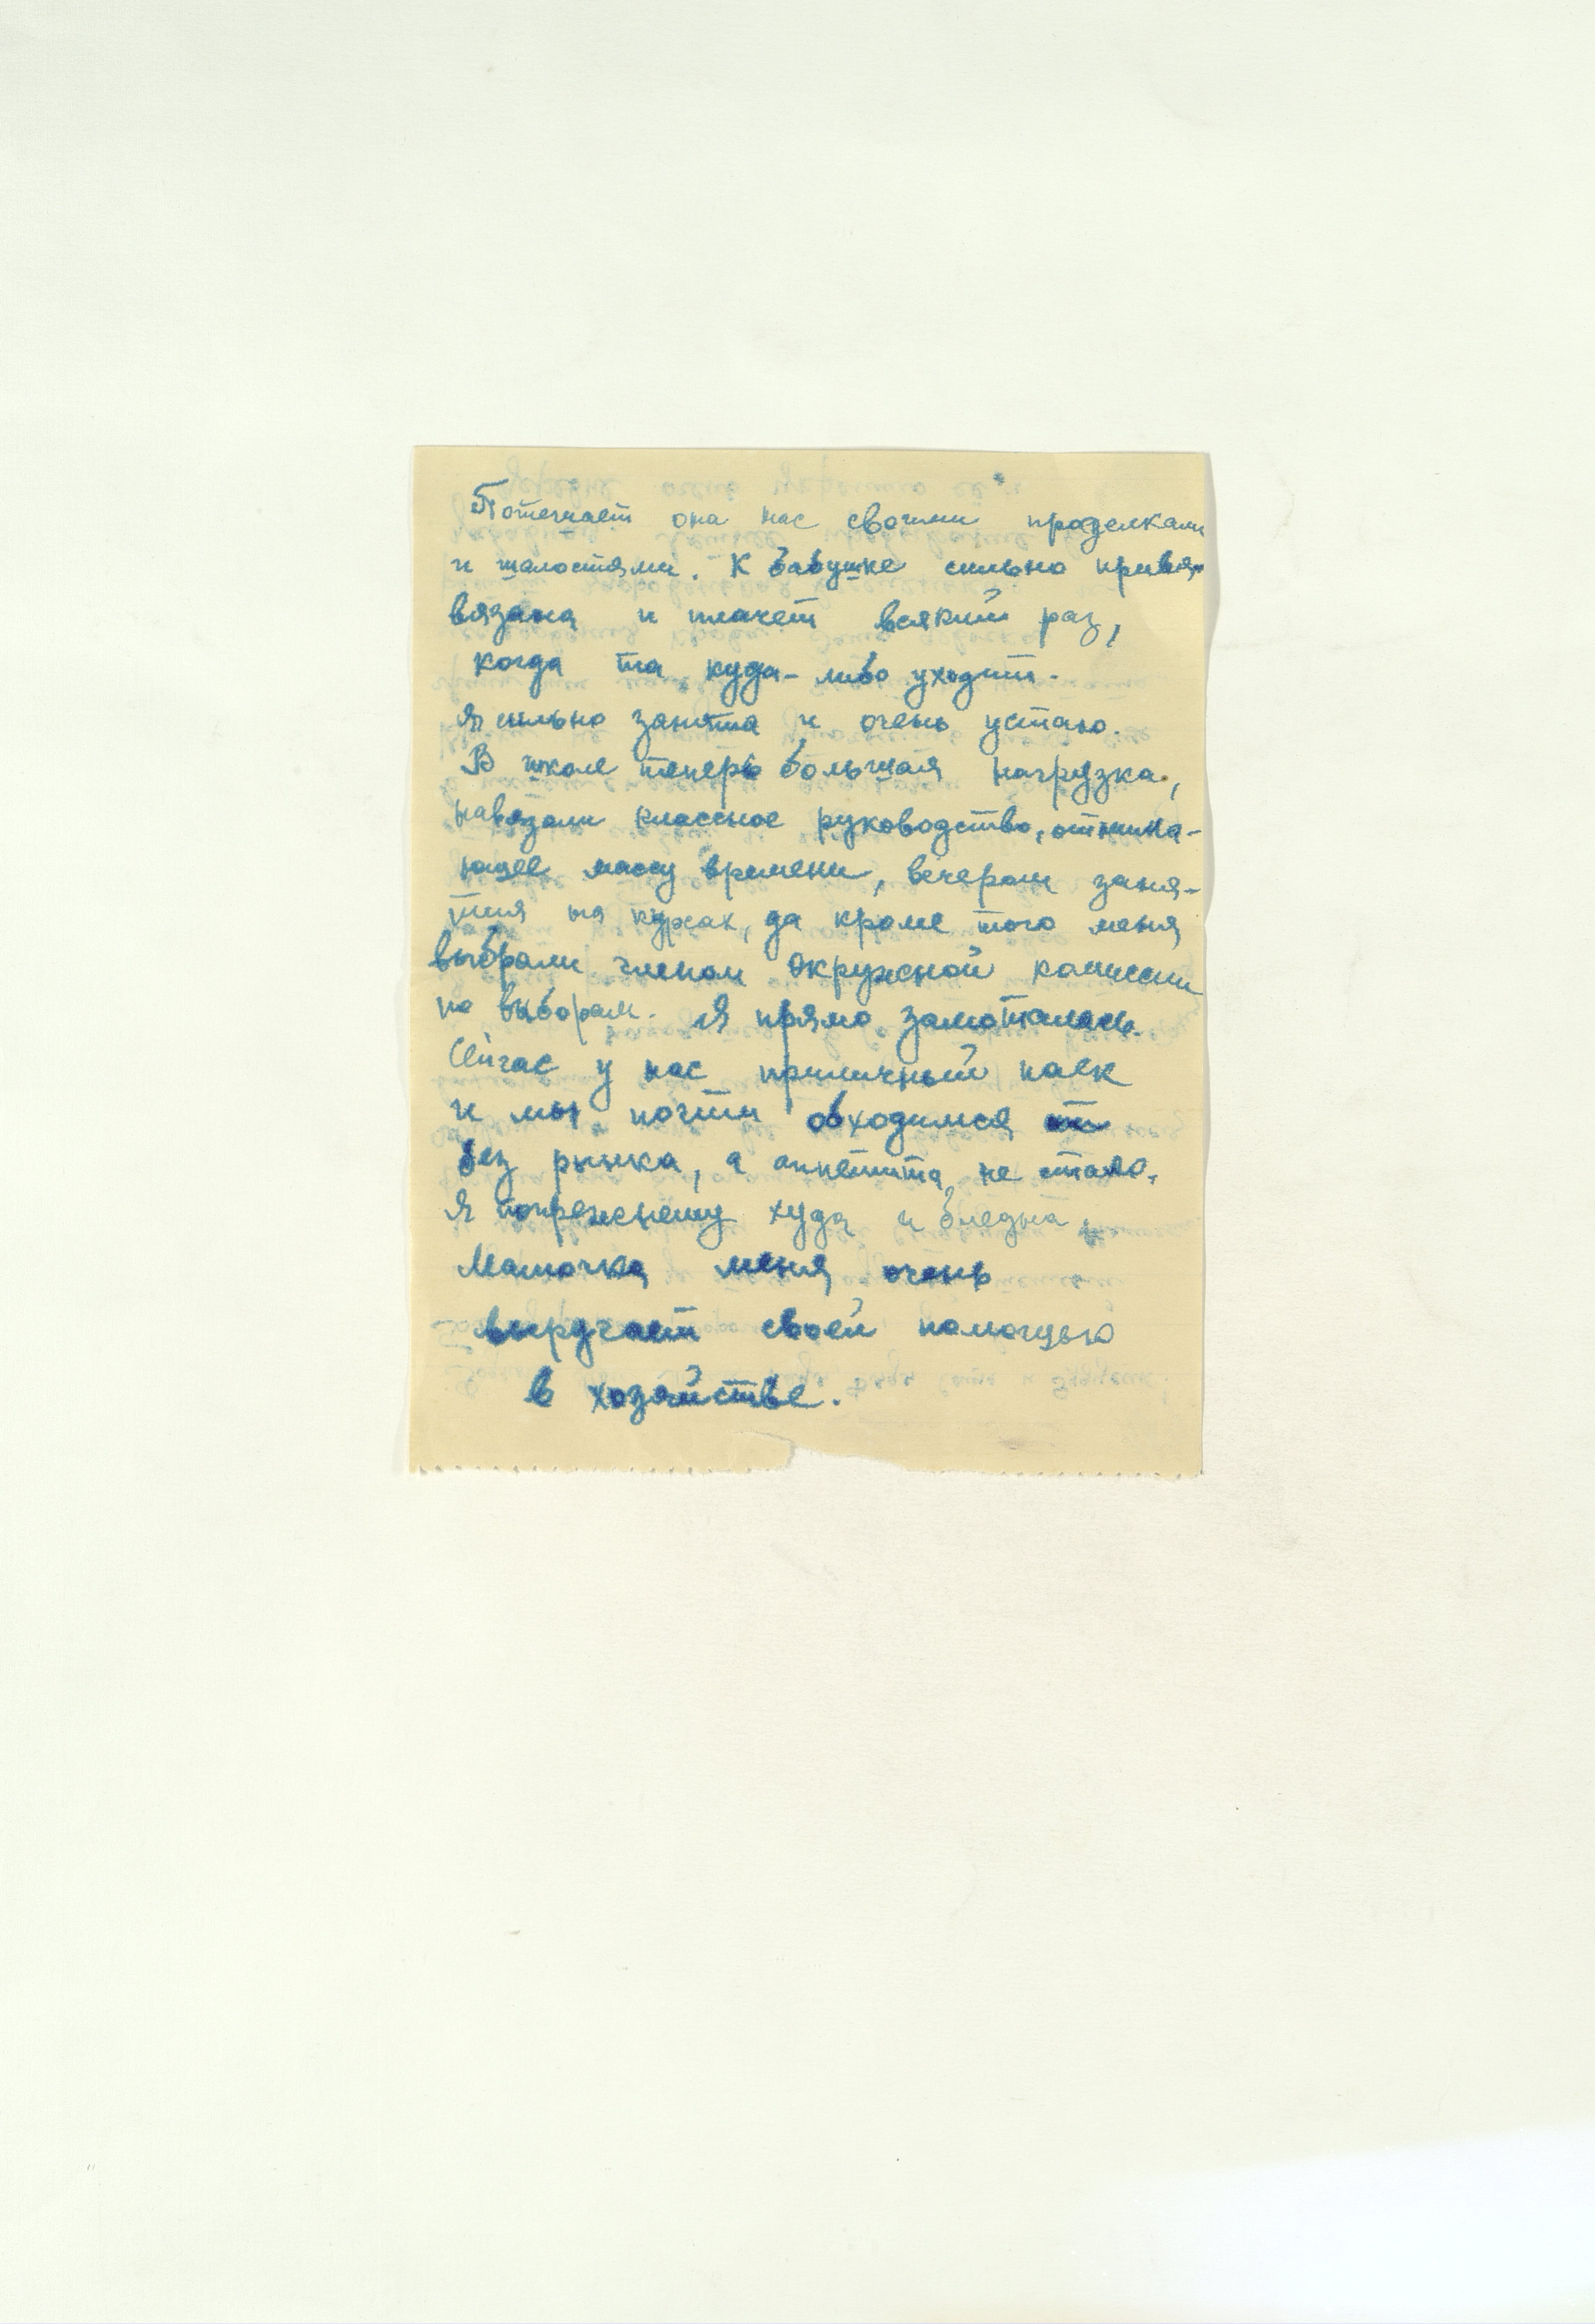 Потешает она нас своими проделками
и шалостями. К бабушке сильно привя-
вязана и плачет всякий раз,
когда та куда-либо уходит.
Я сильно занята и очень устаю.
В школе теперь большая нагрузка,
навязали классное руководство, отнима-
ющее массу времени, вечером заня-
тия на курсах, да кроме того меня
выбрали членом Окружной комиссии
по выборам. Я прямо замоталась.
Сейчас у нас приличный паек
и мы почти обходимся
без рынка, а аппетита не стало.
Я попрежнему худа и бледна.
Мамочка меня очень
выручает своей помощью
в хозяйстве.